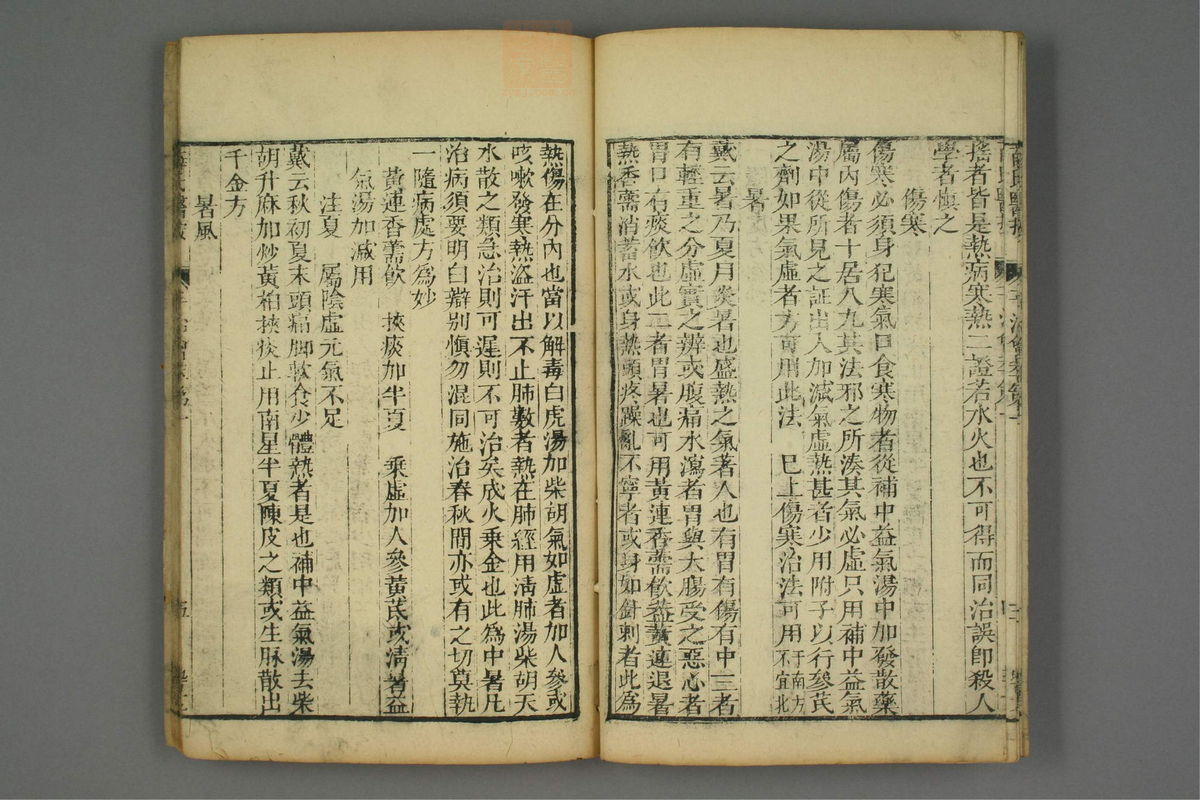 擔者皆是熱病寒熱二證若水火也不可得而同治誤即殺人
學者慎之
傷寒
傷寒必須身犯寒氣口食寒物者從補中益氣湯中加發散藥
屬內傷者十居八九其法邪之所湊其氣必虛只用補中益氣
湯中從所見之証出入加減氣虛熱甚者少用附子以行參芪
之劑如果氣虛者方可用此法 已上傷寒治法可用于南方不宜北
暑
戴云暑乃夏月炎暑也盛熱之氣著人也有冒有傷有中三者
有輕重之分虛實之辨或腹痛水瀉者胃與大腸受之惡心者
胃口有痰飲也此二者冒暑也可用黃連香薷飲蓋黃連退暑
熱香薷消蓄水或身熱頭疼躁亂不寧者或身如針刺者此為
熱傷在分內也當以解毒白虎湯加柴胡氣如虛者加人參或
咳嗽發寒熱盜汗出不止肺數者熱在肺經用清肺湯柴胡天
水散之類急治則可遲則不可治矣成火乘金也此為中暑凡
治病須要明白辯别慎勿混同施治春秋間亦或有之切莫執
一隨病處方為妙
黃連香薷飲 挾痰加半夏 乘虛加人參黃芪或清暑益
氣湯加減用
注夏 屬陰虛元氣不足
戴云秋初夏末頭痛脚軟食少體熱者是也補中益氣湯去柴
胡升麻加炒黃柏挾痰止用南星半夏陳皮之類或生脉散出
千金方
暑風